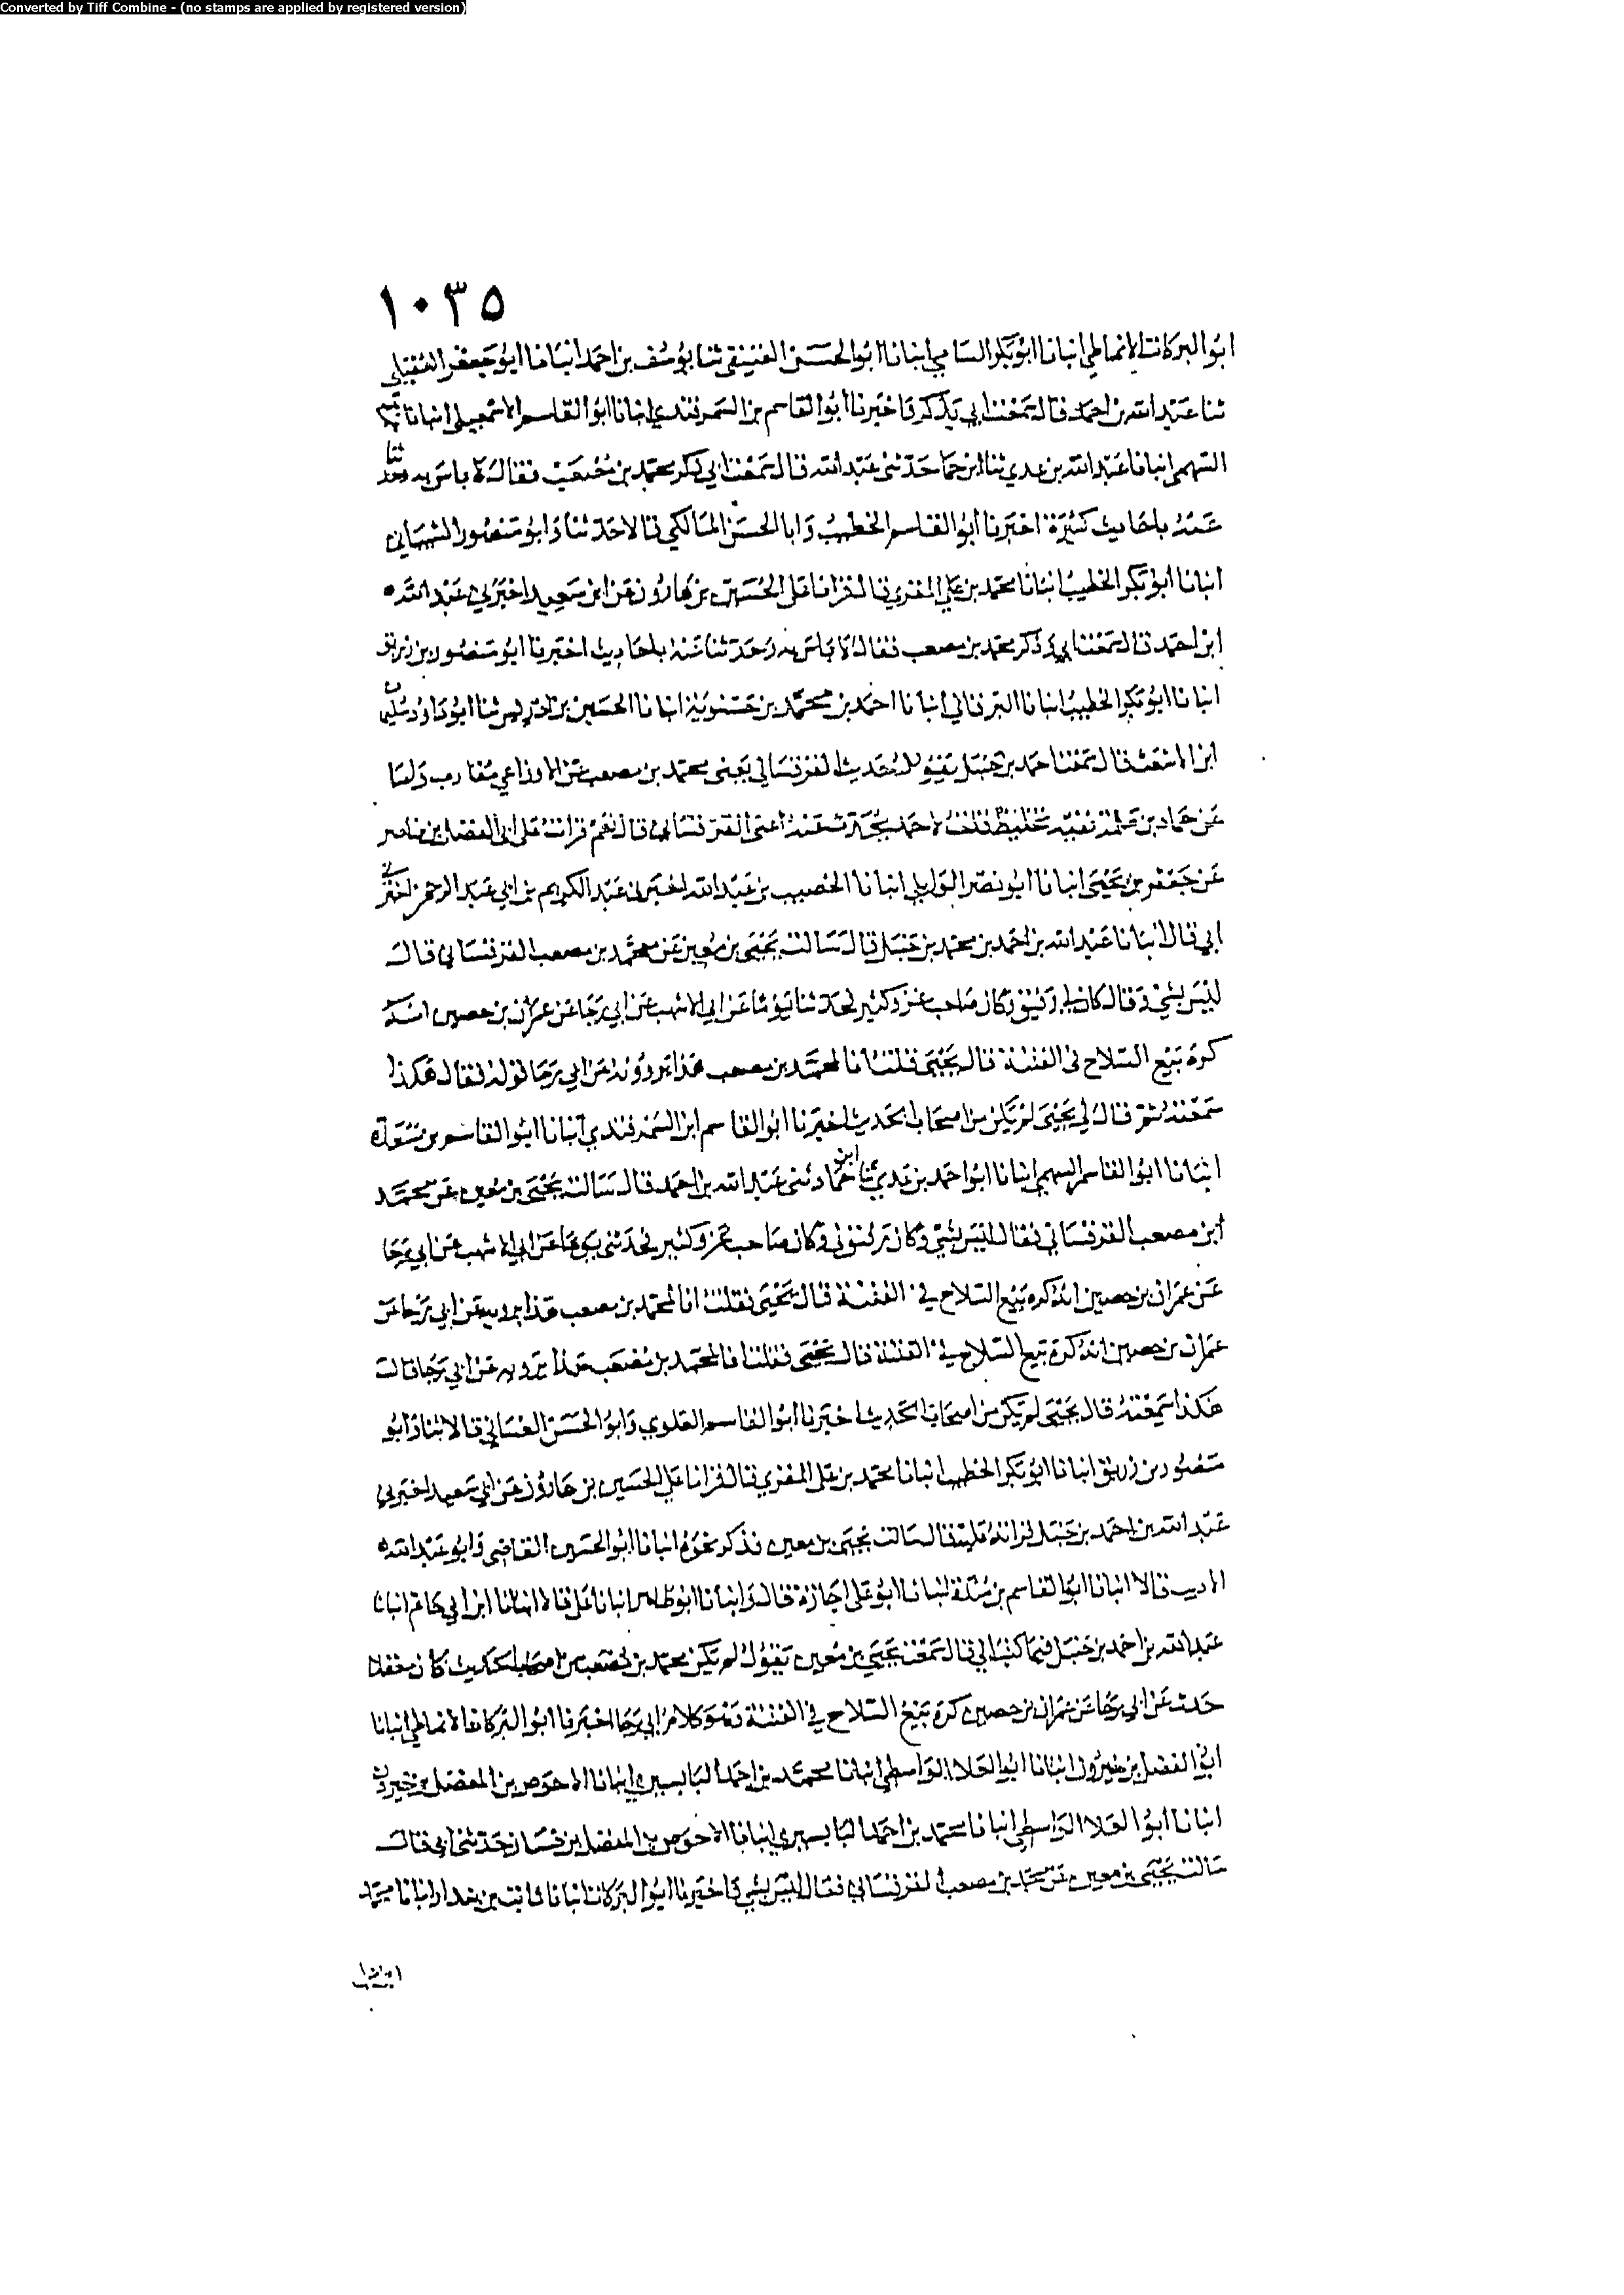 Converted by Tiff Combine - (no stamps are applied by registered version)
١٠٣٥
ابو البركات الانماطي انبانا ابو بكر الشامي انبانا ابو الحسن العتيقي ثنا يوسف بن احمد انبانا ابو جعفر العقيلي
ثنا عبد الله بن احمد قال سمعت ابي يذكر واخبرنا ابو القاسم بن السمرقندي انبانا ابو القاسم الاسمعيلي انبانا
السهمي انبانا عبد الله بن عدي ثنا ابن حما حدثني عبد الله قال سمعت ابي ذكر محمد بن مصعب فقال لا باس به وحد ثنا
عنه باحاديث كثيرة اخبرنا ابو القاسم الخطيب وابا الحسن المالكي قالا حدثنا وابو منصور الشيباني
انبانا ابو بكر الخطيب انبانا محمد بن علي المقري قال قرانا على الحسين بن هارون عن ابن سعيد اخبرني عبد الله
ابن احمد قال سمعت ابي وذكر محمد بن مصعب فقال لا باس به وحدثنا عنه باحاديث اخبرنا ابو منصور بن زريق
انبانا ابو بكر الخطيب انبانا البرقاني انبانا احمد بن محمد بن حسنويه انبانا الحسين بن ادريس ثنا ابو داود سليمان
ابن الاشعث قال سمعت احمد بن حنبل يقول حديث القرقساني يعني محمد بن مصعب عن الاوزاعي مقارب واما
عن حماد بن سلمة ففيه تخليط فقلت لاحمد تحدث عنه اعني القرقساني قال نعم قرات على ابي الفضل بن ناصر
عن جعفر بن يحيى انبانا ابو نصر الوايلي انبانا الخصيب بن عبد الله اخبرني عبد الكريم بن ابي عبد الرحمن اخبرني
ابي قال انبانا عبد الله بن احمد بن محمد بن حنبل قال سالت يحيى بن معين عن محمد بن مصعب القرقساني قال
ليس بشي وقال كان لي رفيق وكان صاحب غزو كثير فحدثنا يوما عن ابي الاشهب عن ابي رجا عن عمران بن حصين انه
كره بيع السلاح في الفتنة قال يحيى فقلت انا لمحمد بن مصعب هذا يروونه عن ابي رجا قوله فقال هكذا
سمعته ثم قال لي يحيى لم يكن من اصحاب الحديث اخبرنا ابو القاسم ابن السمرقندي انبانا ابو القاسم بن مسعدة
انبانا ابو القاسم السهمي انبانا ابو احمد بن عدي ثنا ابن حماد ثنى عبد الله بن احمد قال سالت يحيى بن معين عن محمد
ابن مصعب القرقساني فقال ليس بشي وكان صاحب غزو كثير فحدثني يوما عن ابي الاشهب عن ابي رجا
عن عمران بن حصين انه كره بيع السلاح في الفتنة قال يحيى فقلت انا لمحمد بن مصعب هذا يرويه عن ابي رجا عن
عمران بن حصين انه كره بيع السلاح في الفتنة قال يحيى فقلت انا لمحمد بن مصعب هذا يرويه عن ابي رجا قال
هكذا سمعته قال يحيى لم يكن من اصحاب الحديث اخبرنا ابو القاسم العلوي وابو الحسن الغساني قالا ثنا وابو
منصور بن زريق انبانا ابو بكر الخطيب انبانا محمد بن علي المقري قال قرانا على الحسين بن هارون عن ابي سعيد اخبرني
عبد الله بن احمد بن حنبل قال سالت يحيى بن معين فذكر نحوه انبانا ابو الحسين القاضي وابو عبد الله
الاديب قالا انبانا ابو القاسم بن مندة انبانا ابو علي اجازة قال وانبانا ابو طاهر انبانا علي قالا انبانا ابن ابي حاتم انبانا
عبد الله بن احمد بن حنبل فيما كتب الي قال سمعت يحيى بن معين يقول لم يكن محمد بن مصعب من اصحاب الحديث كان مغفلا
حدث عن ابي رجا عن عمران بن حصين كره بيع السلاح في الفتنة وهو كلام ابي رجا اخبرنا ابو البركات الانماطي انبانا
ابو الفضل بن خيرون انبانا ابو العلا الواسطي انبانا محمد بن احمد البابسيري انبانا الاحوص بن المفضل بن خيرون
انبانا ابو العلا الواسطي انبانا محمد بن احمد البابسيري انبانا الاحوص بن المفضل بن غسان حدثني ابي قال
سالت يحيى بن معين عن محمد بن مصعب القرقساني فقال ليس بشي واخبرنا ابو البركات انبانا ثابت بن بندار انبانا محمد